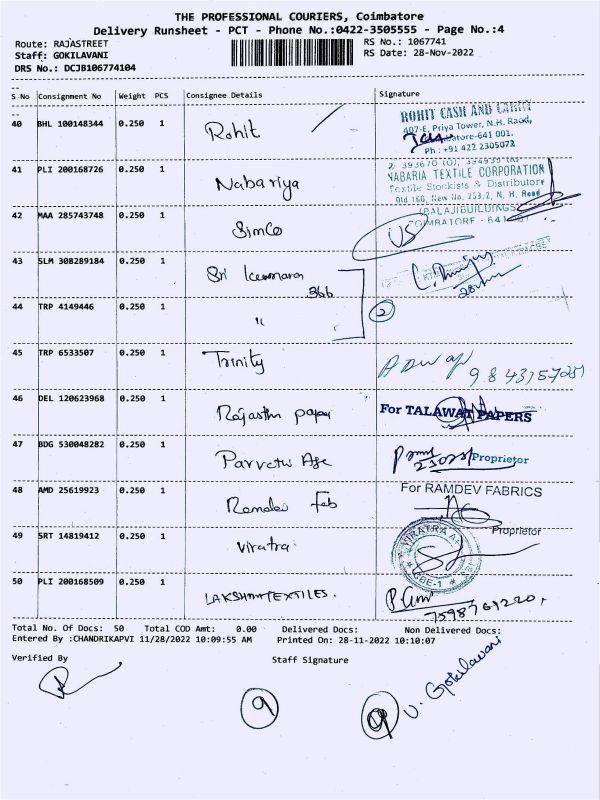 THE PROFESSIONAL COURIERS, Coimbatore
Delivery Runsheet - PCT - Phone No.:0422-3505555 - Page No.:4
Route: RAJASTREET
Staff: GOKILAVANI
DRS No.: DCJB106774104
RS No.: 1067741
RS Date: 28-Nov-2022
S No Consignment No Weight PCS Consignee Details Signature
40 BHL 100148344 0.250 1 Rohit
ROHIT CASH AND CARRY
407-E, Priya Tower, N.H. Road,
-641 001.
Ph : +91 422 2305072
41 PLI 200168726 0.250 1 Nabariya
NABARIA TEXTILE CORPORATION
Textile Stockists & Distributors
Old 160, New No. 253,2, N. H. Road
BALAJI BUILDINGS
COIMBATORE - 641
42 MAA 285743748 0.250 1 Simco
43 SLM 308289184 0.250 1 Sri Kumaran
44 TRP 4149446 0.250 1 "
2
45 TRP 6533507 0.250 1 Trinity
46 DEL 120623968 0.250 1 Rajasthn paper
For TALAWAT PAPERS
47 BDG 530048282 0.250 1
Proprietor
48 AMD 25619923 0.250 1 Ramdev Fab
For RAMDEV FABRICS
Proprietor
49 SRT 14819412 0.250 1 Viratra
VIRATRA
CBE-1
50 PLI 200168509 0.250 1 LAKSHMI TEXTILES.
Total No. Of Docs: 50 Total COD Amt: 0.00 Delivered Docs: Non Delivered Docs:
Entered By :CHANDRIKAPVI 11/28/2022 10:09:55 AM Printed On: 28-11-2022 10:10:07
Verified By Staff Signature
9
9
V. Gokilavani